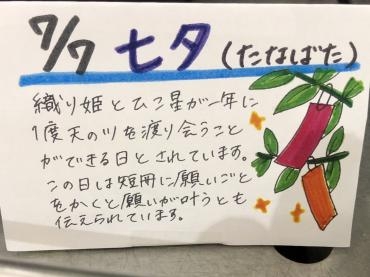 7/7 七夕(たなばた)
織り姫とひこ星が一年に
1度天の川を渡り会うこと
ができる日とされています。
この日は短冊に願いごと
をかくと願いが叶うとも
伝えられています。